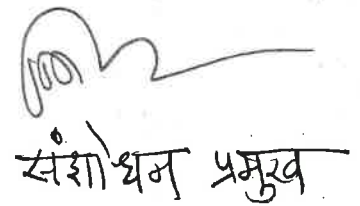 संशोधन प्रमुख